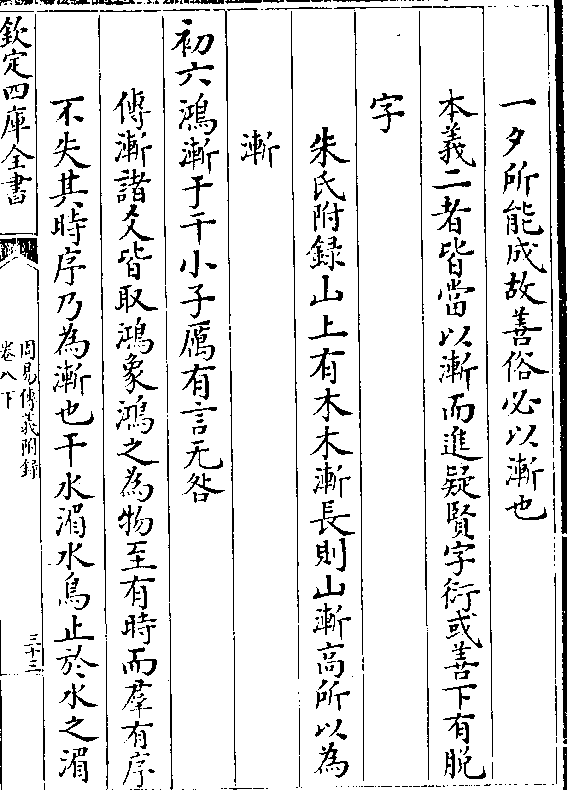 一夕所能成故善俗必以漸也
本義二者皆當以漸而進疑賢字衍或善下有脫
字
朱氏附録山上有木木漸長則山漸高所以為
漸
初六鴻漸于干小子厲有言无咎
傳漸諸爻皆取鴻象鴻之為物至有時而羣有序
不失其時序乃為漸也干水湄水鳥止於水之湄
欽定四庫全書
周易傳義附録
卷八下
三十三